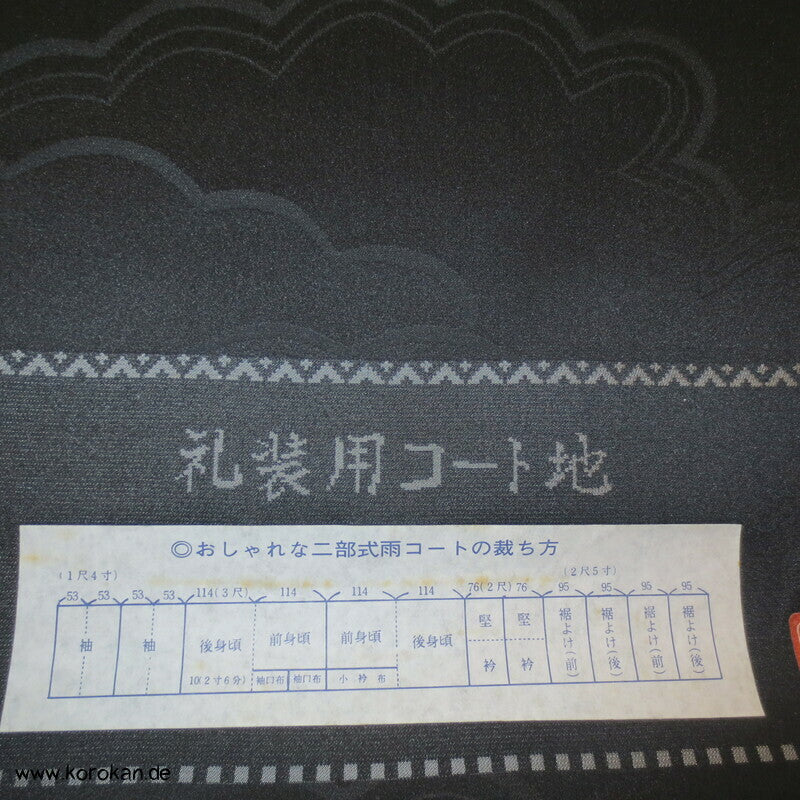 礼装用コート地
◎おしゃれな二部式雨コートの裁ち方
(1尺4寸) (2尺5寸)
53 53 53 53 114(3尺) 114 114 114 76(2尺) 76 95 95 95 95
袖 袖 後身頃 前身頃 前身頃 後身頃 堅衿 堅衿 裾よけ(前) 裾よけ(後) 裾よけ(前) 裾よけ(後)
10(2寸6分) 袖口布 袖口布 小衿布
www.korokan.de